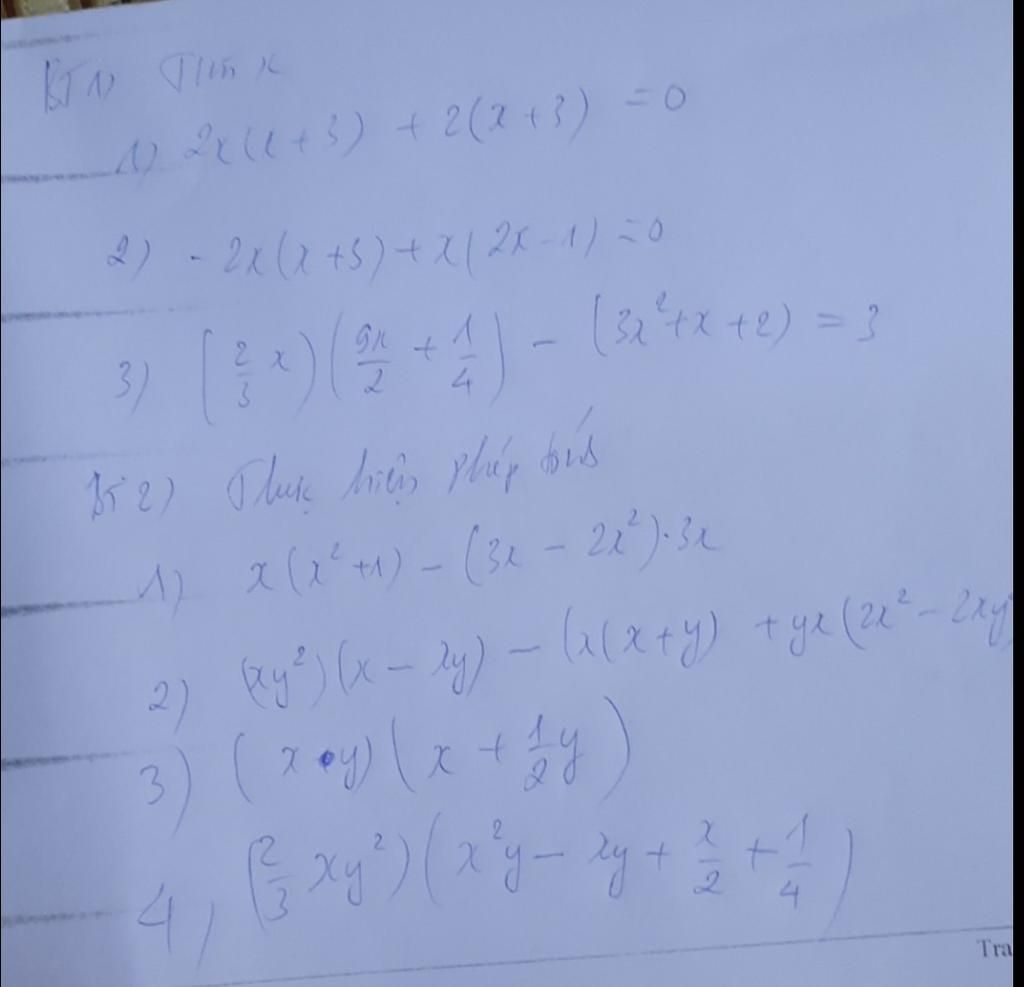 BT1) Tìm x
1) 2x(x+3) + 2(x+3) = 0
2) -2x(x+3)+x(2x-1)=0
3) (2/3 x)(9x/2 + 1/4) - (3x²+x+2) = 3
BT2) Thực hiện phép tính
1) x(x²+1) - (3x - 2x²)·3x
2) (xy²)(x - 2y) - (x(x+y) + yx(2x² - 2xy
3) (x·y)(x + 1/2 y)
4, (2/3 xy²)(x²y - 2y + x/2 + 1/4)
Tra